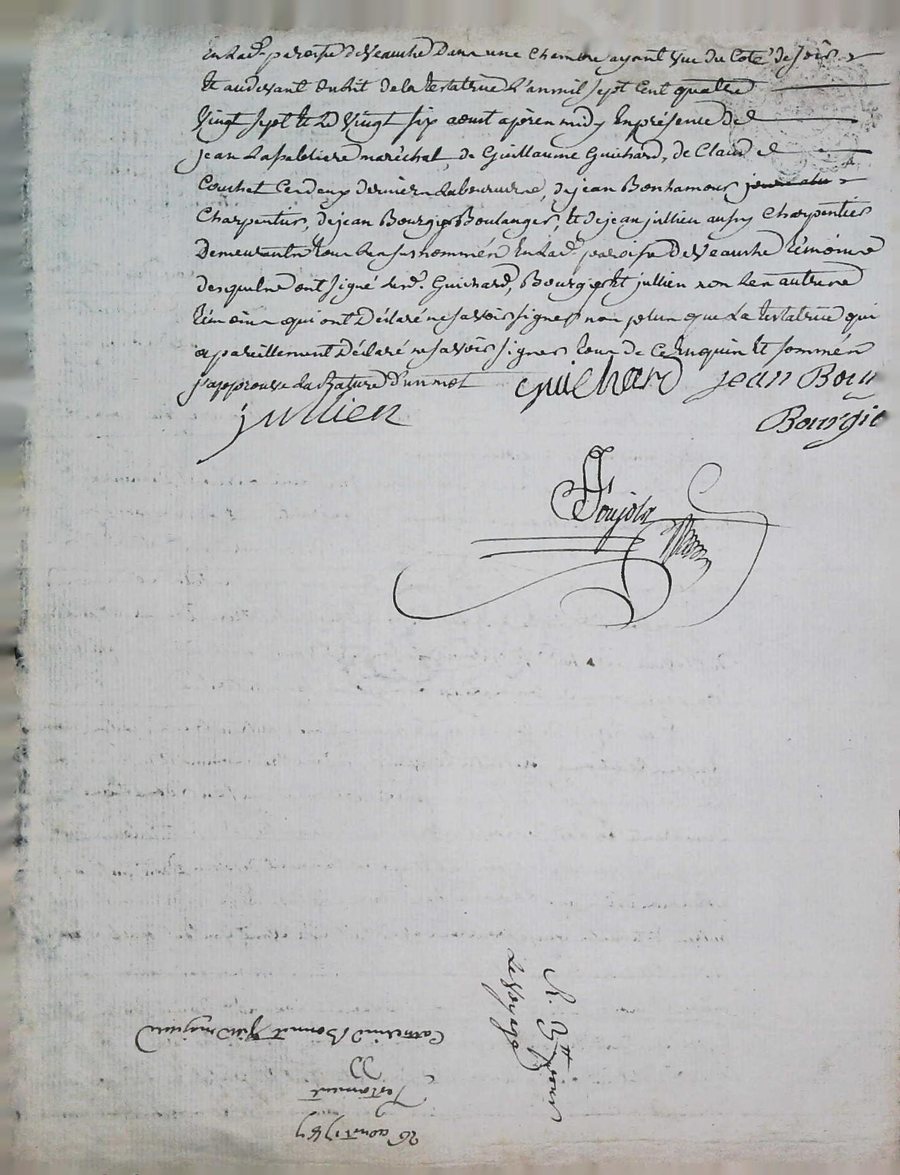 En lad.e paroisse de Veauche Dans une Chambre ayant vue du Coté de soir
Et au devant du lit de la testatrice L'an mil sept Cent quatre
Vingt sept Et le Vingt six aoust après midy En présence de
jean Lapalatiere maréchal, de Guillaume Guichard, de Claude
Couchet Ces deux derniers Laboureurs, de jean Bonhamour
Charpentier, de jean Bourgie Boulanger, Et de jean jullien aussy Charpentier
Demeurants tous les susnommés En lad.e paroisse de Veauche témoins
desquels ont signé lesd. Guichard, Bourgie Et jullien non les autres
témoins qui ont Déclaré ne savoir signer non plus que La testatrice qui
a pareillement Déclaré ne savoir signer tous de Ce Enquis Et sommés
j'approuve la Rature d'un mot
Guichard jean Bour
jullien Bourgie
26 aout 1787
Testament
Catherine Bonnet
Le Voyage